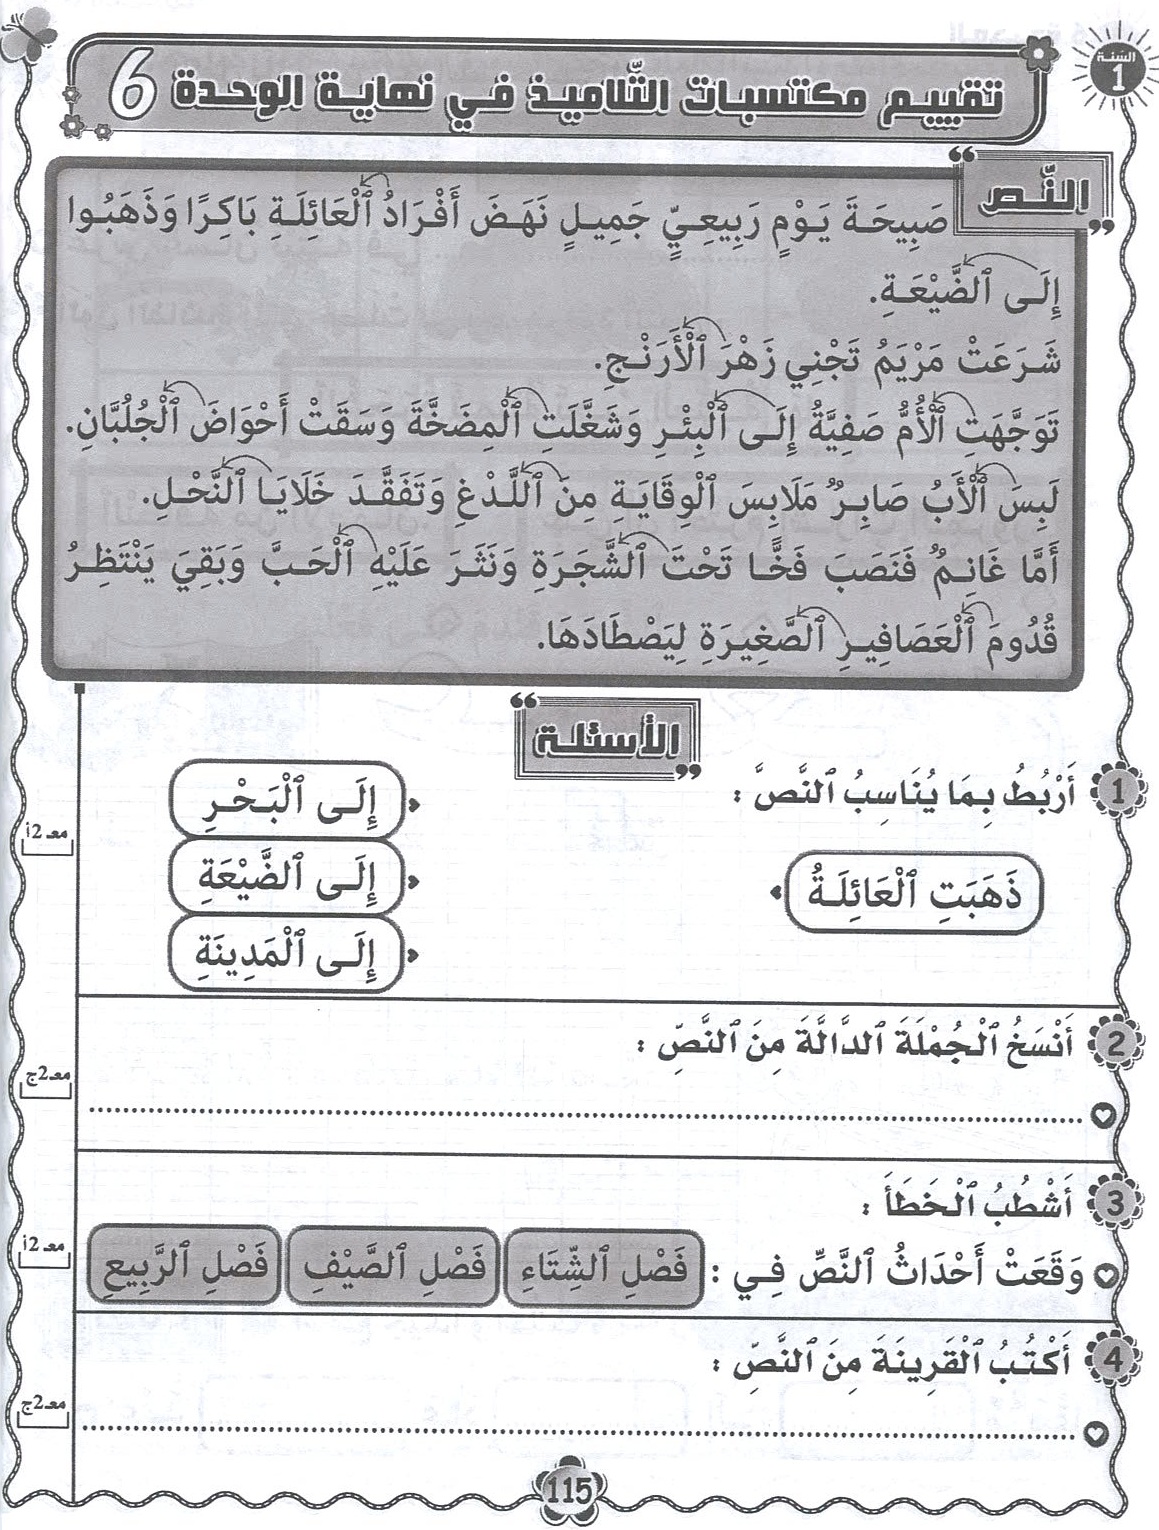 السّنة
1
تقييم مكتسبات التّلاميذ في نهاية الوحدة 6
النّص
صَبِيحَةَ يَوْمٍ رَبِيعِيٍّ جَمِيلٍ نَهَضَ أَفْرَادُ ٱلْعَائِلَةِ بَاكِرًا وَذَهَبُوا
إِلَى ٱلضَّيْعَةِ.
شَرَعَتْ مَرْيَمُ تَجْنِي زَهْرَ ٱلْأَرَنْجِ.
تَوَجَّهَتِ ٱلْأُمُّ صَفِيَّةُ إِلَى ٱلْبِئْرِ وَشَغَّلَتِ ٱلْمِضَخَّةَ وَسَقَتْ أَحْوَاضَ ٱلْجُلُبَّانِ.
لَبِسَ ٱلْأَبُ صَابِرٌ مَلَابِسَ ٱلْوِقَايَةِ مِنَ ٱللَّدْغِ وَتَفَقَّدَ خَلَايَا ٱلنَّحْلِ.
أَمَّا غَانِمٌ فَنَصَبَ فَخًّا تَحْتَ ٱلشَّجَرَةِ وَنَثَرَ عَلَيْهِ ٱلْحَبَّ وَبَقِيَ يَنْتَظِرُ
قُدُومَ ٱلْعَصَافِيرِ ٱلصَّغِيرَةِ لِيَصْطَادَهَا.
الأسئلة
1 أَرْبُطُ بِمَا يُنَاسِبُ ٱلنَّصَّ :
إِلَى ٱلْبَحْرِ
معـ2أ
ذَهَبَتِ ٱلْعَائِلَةُ
إِلَى ٱلضَّيْعَةِ
إِلَى ٱلْمَدِينَةِ
2 أَنْسَخُ ٱلْجُمْلَةَ ٱلدَّالَّةَ مِنَ ٱلنَّصِّ :
معـ2ج
3 أَشْطُبُ ٱلْخَطَأَ :
وَقَعَتْ أَحْدَاثُ ٱلنَّصِّ فِي : فَصْلِ ٱلشِّتَاءِ فَصْلِ ٱلصَّيْفِ فَصْلِ ٱلرَّبِيعِ
معـ2أ
4 أَكْتُبُ ٱلْقَرِينَةَ مِنَ ٱلنَّصِّ :
معـ2ج
115